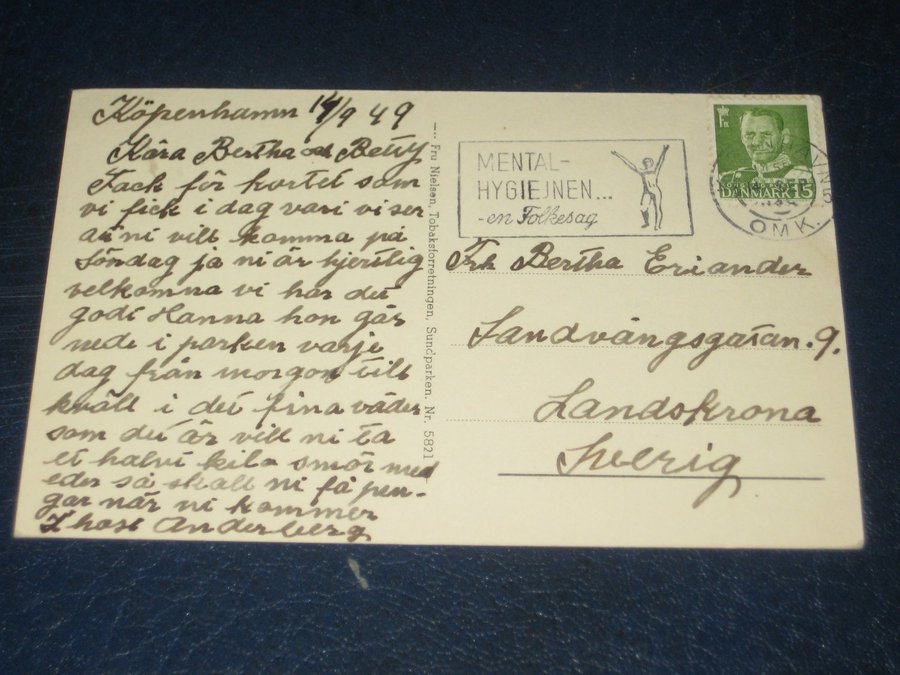 Köpenhamn 14/9 49
Kära Bertha och Betty
Tack för kortet som
vi fick i dag vari vi ser
at ni vill komma på
Söndag ja ni är hjertlig
velkomna vi har det
godt Hanna hon går
nede i parken varje
dag från morgon till
kväll i det fina väder
som det är vill ni ta
et halvt kilo smör med
eder så skall ni få pen-
gar när ni kommer
I hast Anderberg
-- Fru Nielsen, Tobaksforretningen, Sundparken. Nr. 5821
MENTAL-
HYGIEJNEN...
-en Folkesag
DANMARK 15
OMK.
Frk Bertha Eriander
Sandvångsgatan. 9.
Landskrona
Sverig